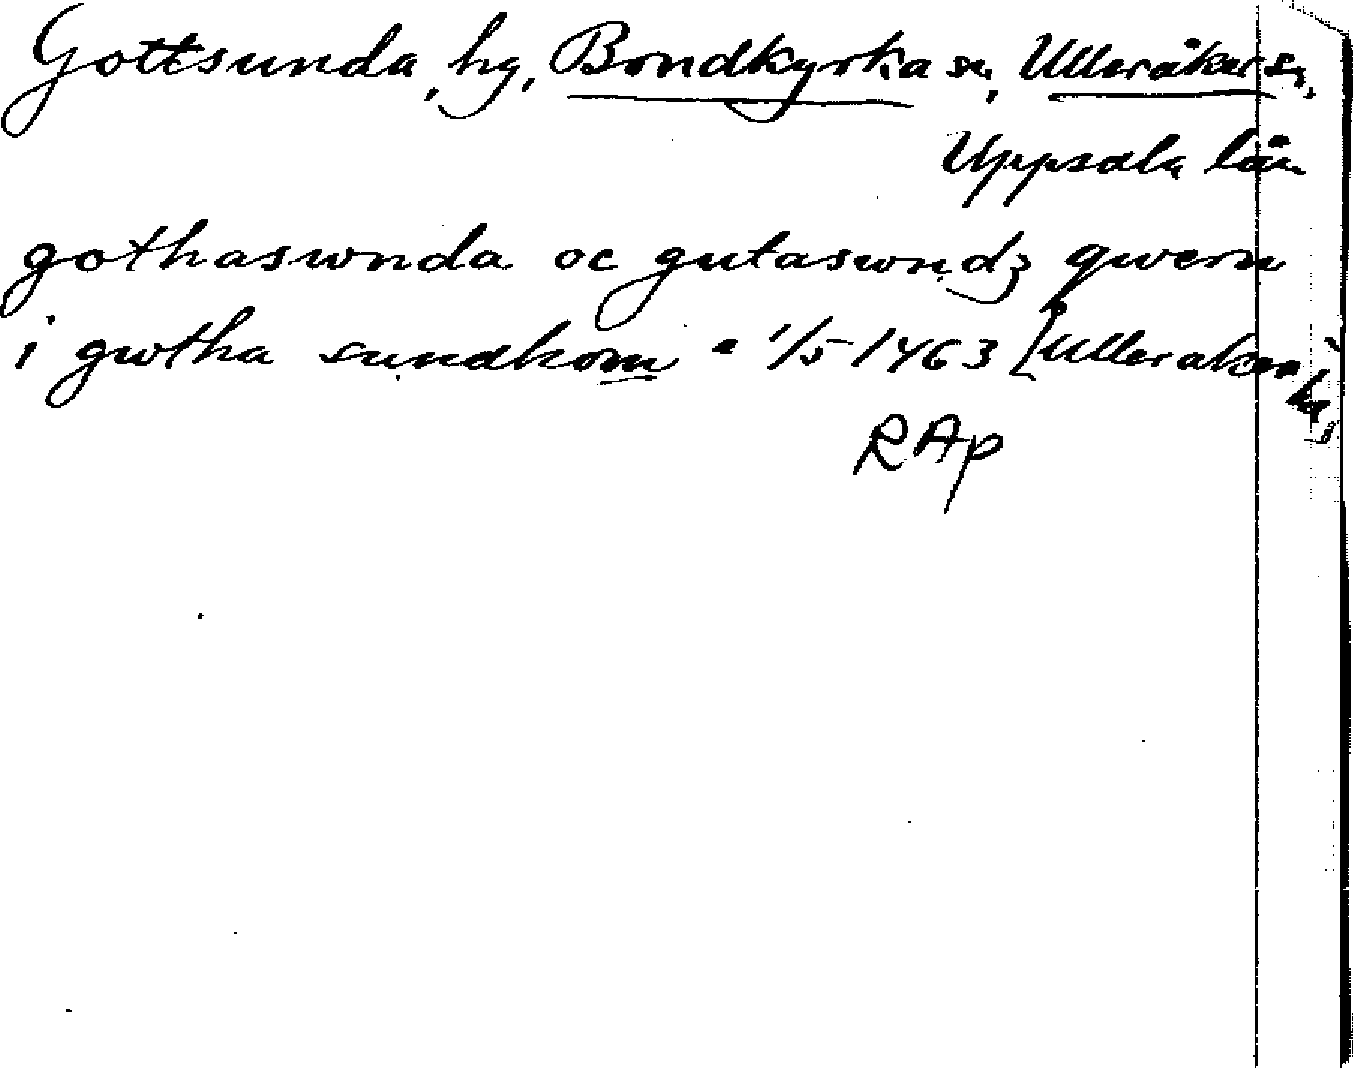 Gottsunda, hg, Bondkyrka sn, Ulleråkers
Uppsala län
gothaswnda oc gutaswndz qwern
i gwtha sundhom 1/5 1463 [Ulleraker
RAp